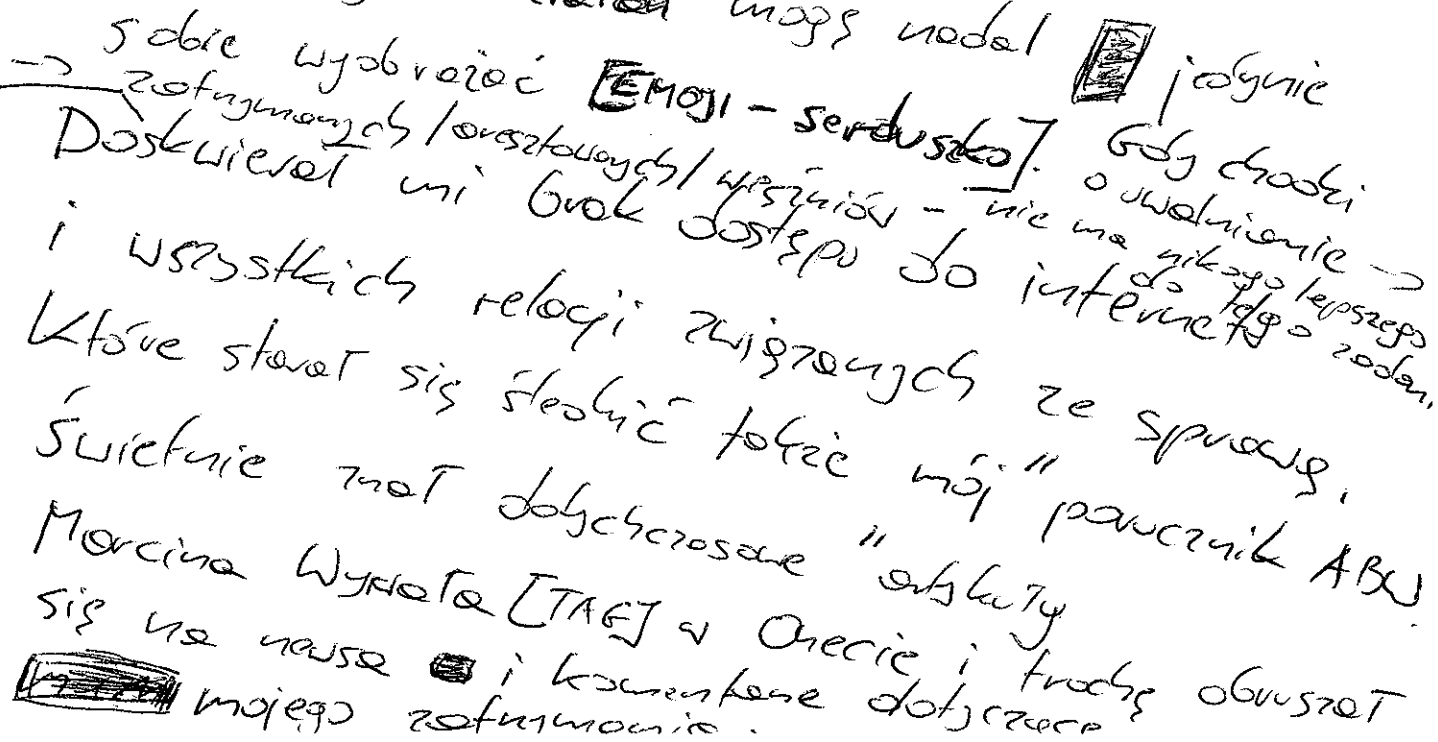 mogę nadal jedynie
sobie wyobrażać [EMOJI - serduszko]. Gdy chodzi
o uwolnienie ->
-> zatrzymanych/aresztowanych/więźniów - nie ma nikogo lepszego
do tego zadan.
Doskwierał mi brak dostępu do internetu
i wszystkich relacji związanych ze sprawą,
które starał się śledzić także mój "porucznik ABW.
Świetnie znał dotychczasowe "artykuły
Marcina Wyrwała [TAG] w Onecie i trochę obruszał
się na newsa i komentarze dotyczące
mojego zatrzymania.